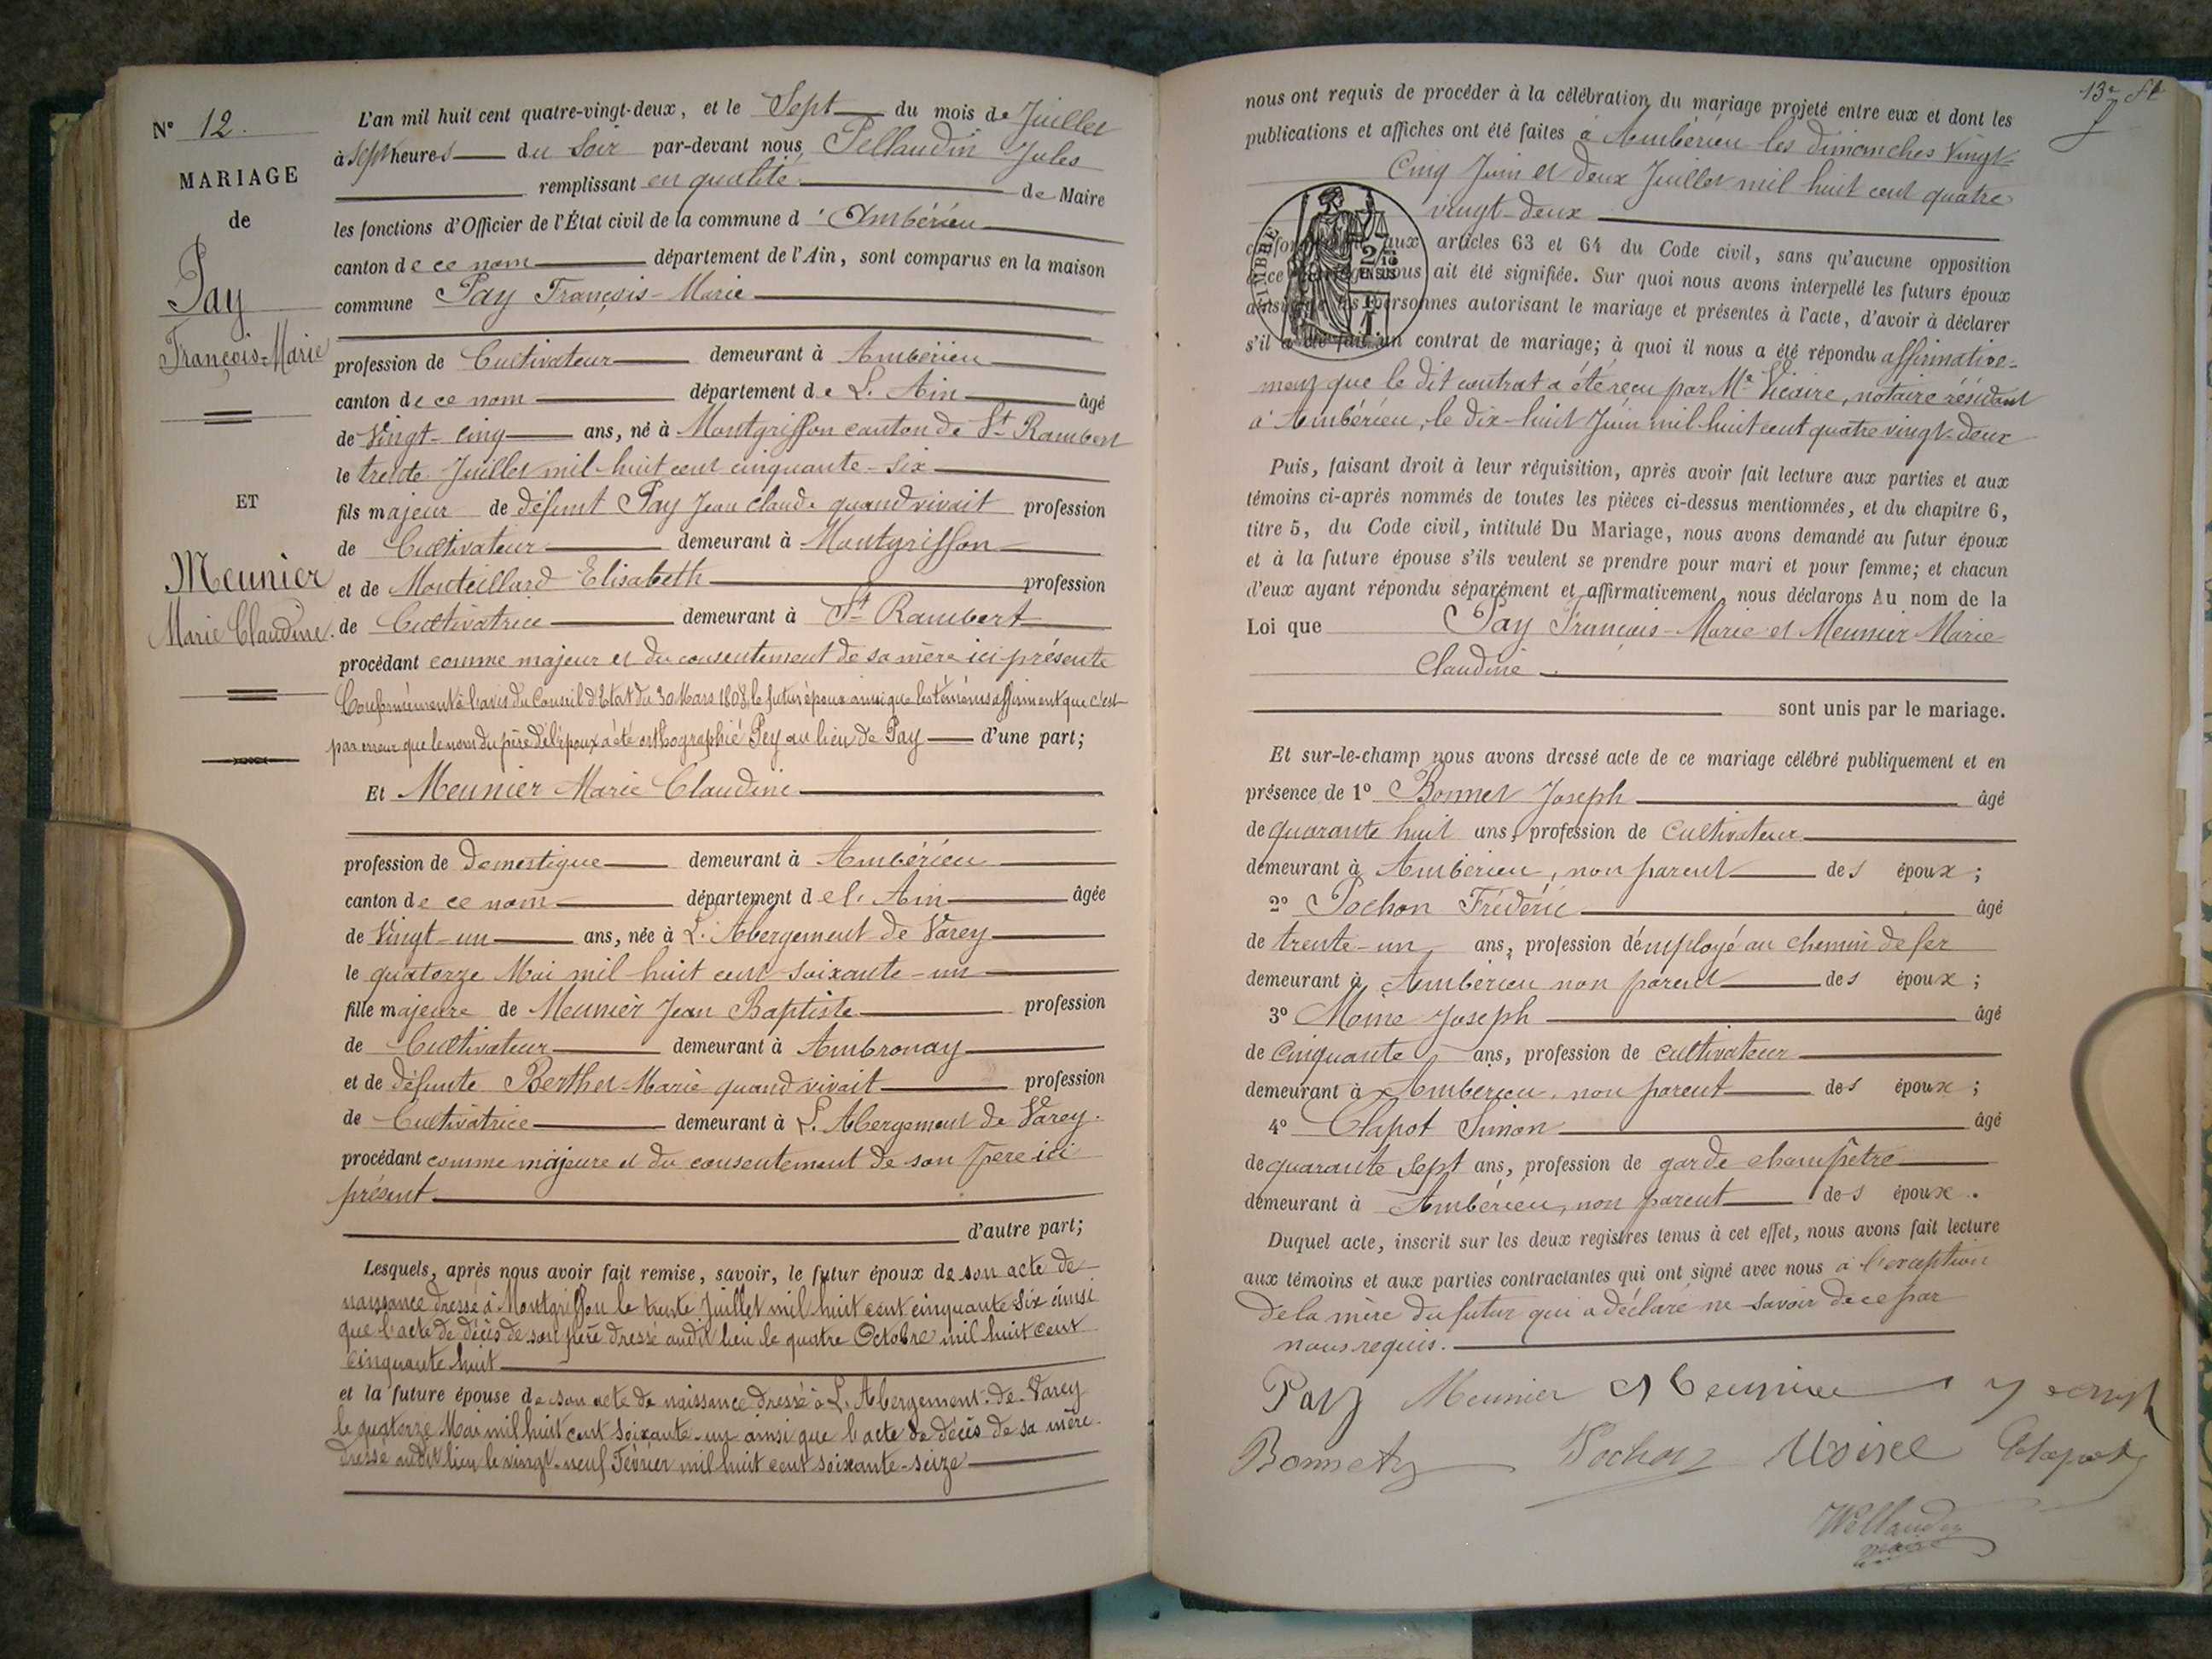 N° 12.
MARIAGE
de
Pay
François-Marie
ET
Meunier
Marie Claudine.
L'an mil huit cent quatre-vingt-deux, et le Sept du mois de Juillet
à sept heures du Soir par-devant nous Pellaudin Jules
remplissant en qualité de Maire
les fonctions d'Officier de l'État civil de la commune d'Ambérieu
canton de ce nom département de l'Ain, sont comparus en la maison
commune Pay François-Marie
profession de Cultivateur demeurant à Ambérieu
canton de ce nom département de L'Ain âgé
de Vingt-cinq ans, né à Montgriffon canton de St Rambert
le trente Juillet mil huit cent cinquante-six
fils majeur de défunt Pay Jean Claude quand vivait profession
de Cultivateur demeurant à Montgriffon
et de Monteillard Elisabeth profession
de Cultivatrice demeurant à St Rambert
procédant comme majeur et du consentement de sa mère ici présente
Conformément à l'avis du Conseil d'Etat du 30 Mars 1808, le futur époux ainsi que les témoins affirment que c'est
par erreur que le nom du père de l'époux a été orthographié Pey au lieu de Pay d'une part;
Et Meunier Marie Claudine
profession de domestique demeurant à Ambérieu
canton de ce nom département de l'Ain âgée
de Vingt-un ans, née à L'Abergement de Varey
le quatorze Mai mil huit cent soixante-un
fille majeure de Meunier Jean Baptiste profession
de Cultivateur demeurant à Ambronay
et de défunte Berthet Marie quand vivait profession
de Cultivatrice demeurant à L'Abergement de Varey.
procédant comme majeure et du consentement de son père ici
présent
d'autre part;
Lesquels, après nous avoir fait remise, savoir, le futur époux de son acte de
naissance dressé à Montgriffon le trente Juillet mil huit cent cinquante six ainsi
que l'acte de décès de son père dressé audit lieu le quatre Octobre mil huit cent
cinquante huit
et la future épouse de son acte de naissance dressé à L'Abergement-de-Varey
le quatorze Mai mil huit cent soixante-un ainsi que l'acte de décès de sa mère
dressé audit lieu le vingt-neuf Février mil huit cent soixante-seize
nous ont requis de procéder à la célébration du mariage projeté entre eux et dont les
publications et affiches ont été faites à Ambérieu les dimanches Vingt-
Cinq Juin et deux Juillet mil huit cent quatre
vingt-deux
TIMBRE
2/10 EN SUS
aux articles 63 et 64 du Code civil, sans qu'aucune opposition
nous ait été signifiée. Sur quoi nous avons interpellé les futurs époux
ainsi que les personnes autorisant le mariage et présentes à l'acte, d'avoir à déclarer
s'il a été fait un contrat de mariage; à quoi il nous a été répondu affirmative-
ment que le dit contrat a été reçu par Me Vicaire, notaire résidant
à Ambérieu, le dix-huit Juin mil huit cent quatre vingt-deux
Puis, faisant droit à leur réquisition, après avoir fait lecture aux parties et aux
témoins ci-après nommés de toutes les pièces ci-dessus mentionnées, et du chapitre 6,
titre 5, du Code civil, intitulé Du Mariage, nous avons demandé au futur époux
et à la future épouse s'ils veulent se prendre pour mari et pour femme; et chacun
d'eux ayant répondu séparément et affirmativement, nous déclarons Au nom de la
Loi que Pay François-Marie et Meunier Marie
Claudine
sont unis par le mariage.
Et sur-le-champ nous avons dressé acte de ce mariage célébré publiquement et en
présence de 1° Bonnet Joseph âgé
de quarante huit ans, profession de cultivateur
demeurant à Ambérieu, non parent des époux;
2° Pochon Frédéric âgé
de trente-un ans, profession d'employé au chemin de fer
demeurant à Ambérieu non parent des époux;
3° Moine Joseph âgé
de cinquante ans, profession de cultivateur
demeurant à Ambérieu, non parent des époux;
4° Clapot Simon âgé
de quarante sept ans, profession de garde champêtre
demeurant à Ambérieu, non parent des époux.
Duquel acte, inscrit sur les deux registres tenus à cet effet, nous avons fait lecture
aux témoins et aux parties contractantes qui ont signé avec nous à l'exception
de la mère du futur qui a déclaré ne savoir de ce par
nous requis.
Pay Meunier Meunier
Bonnet Pochon Moine Clapot
Pellaudin
maire